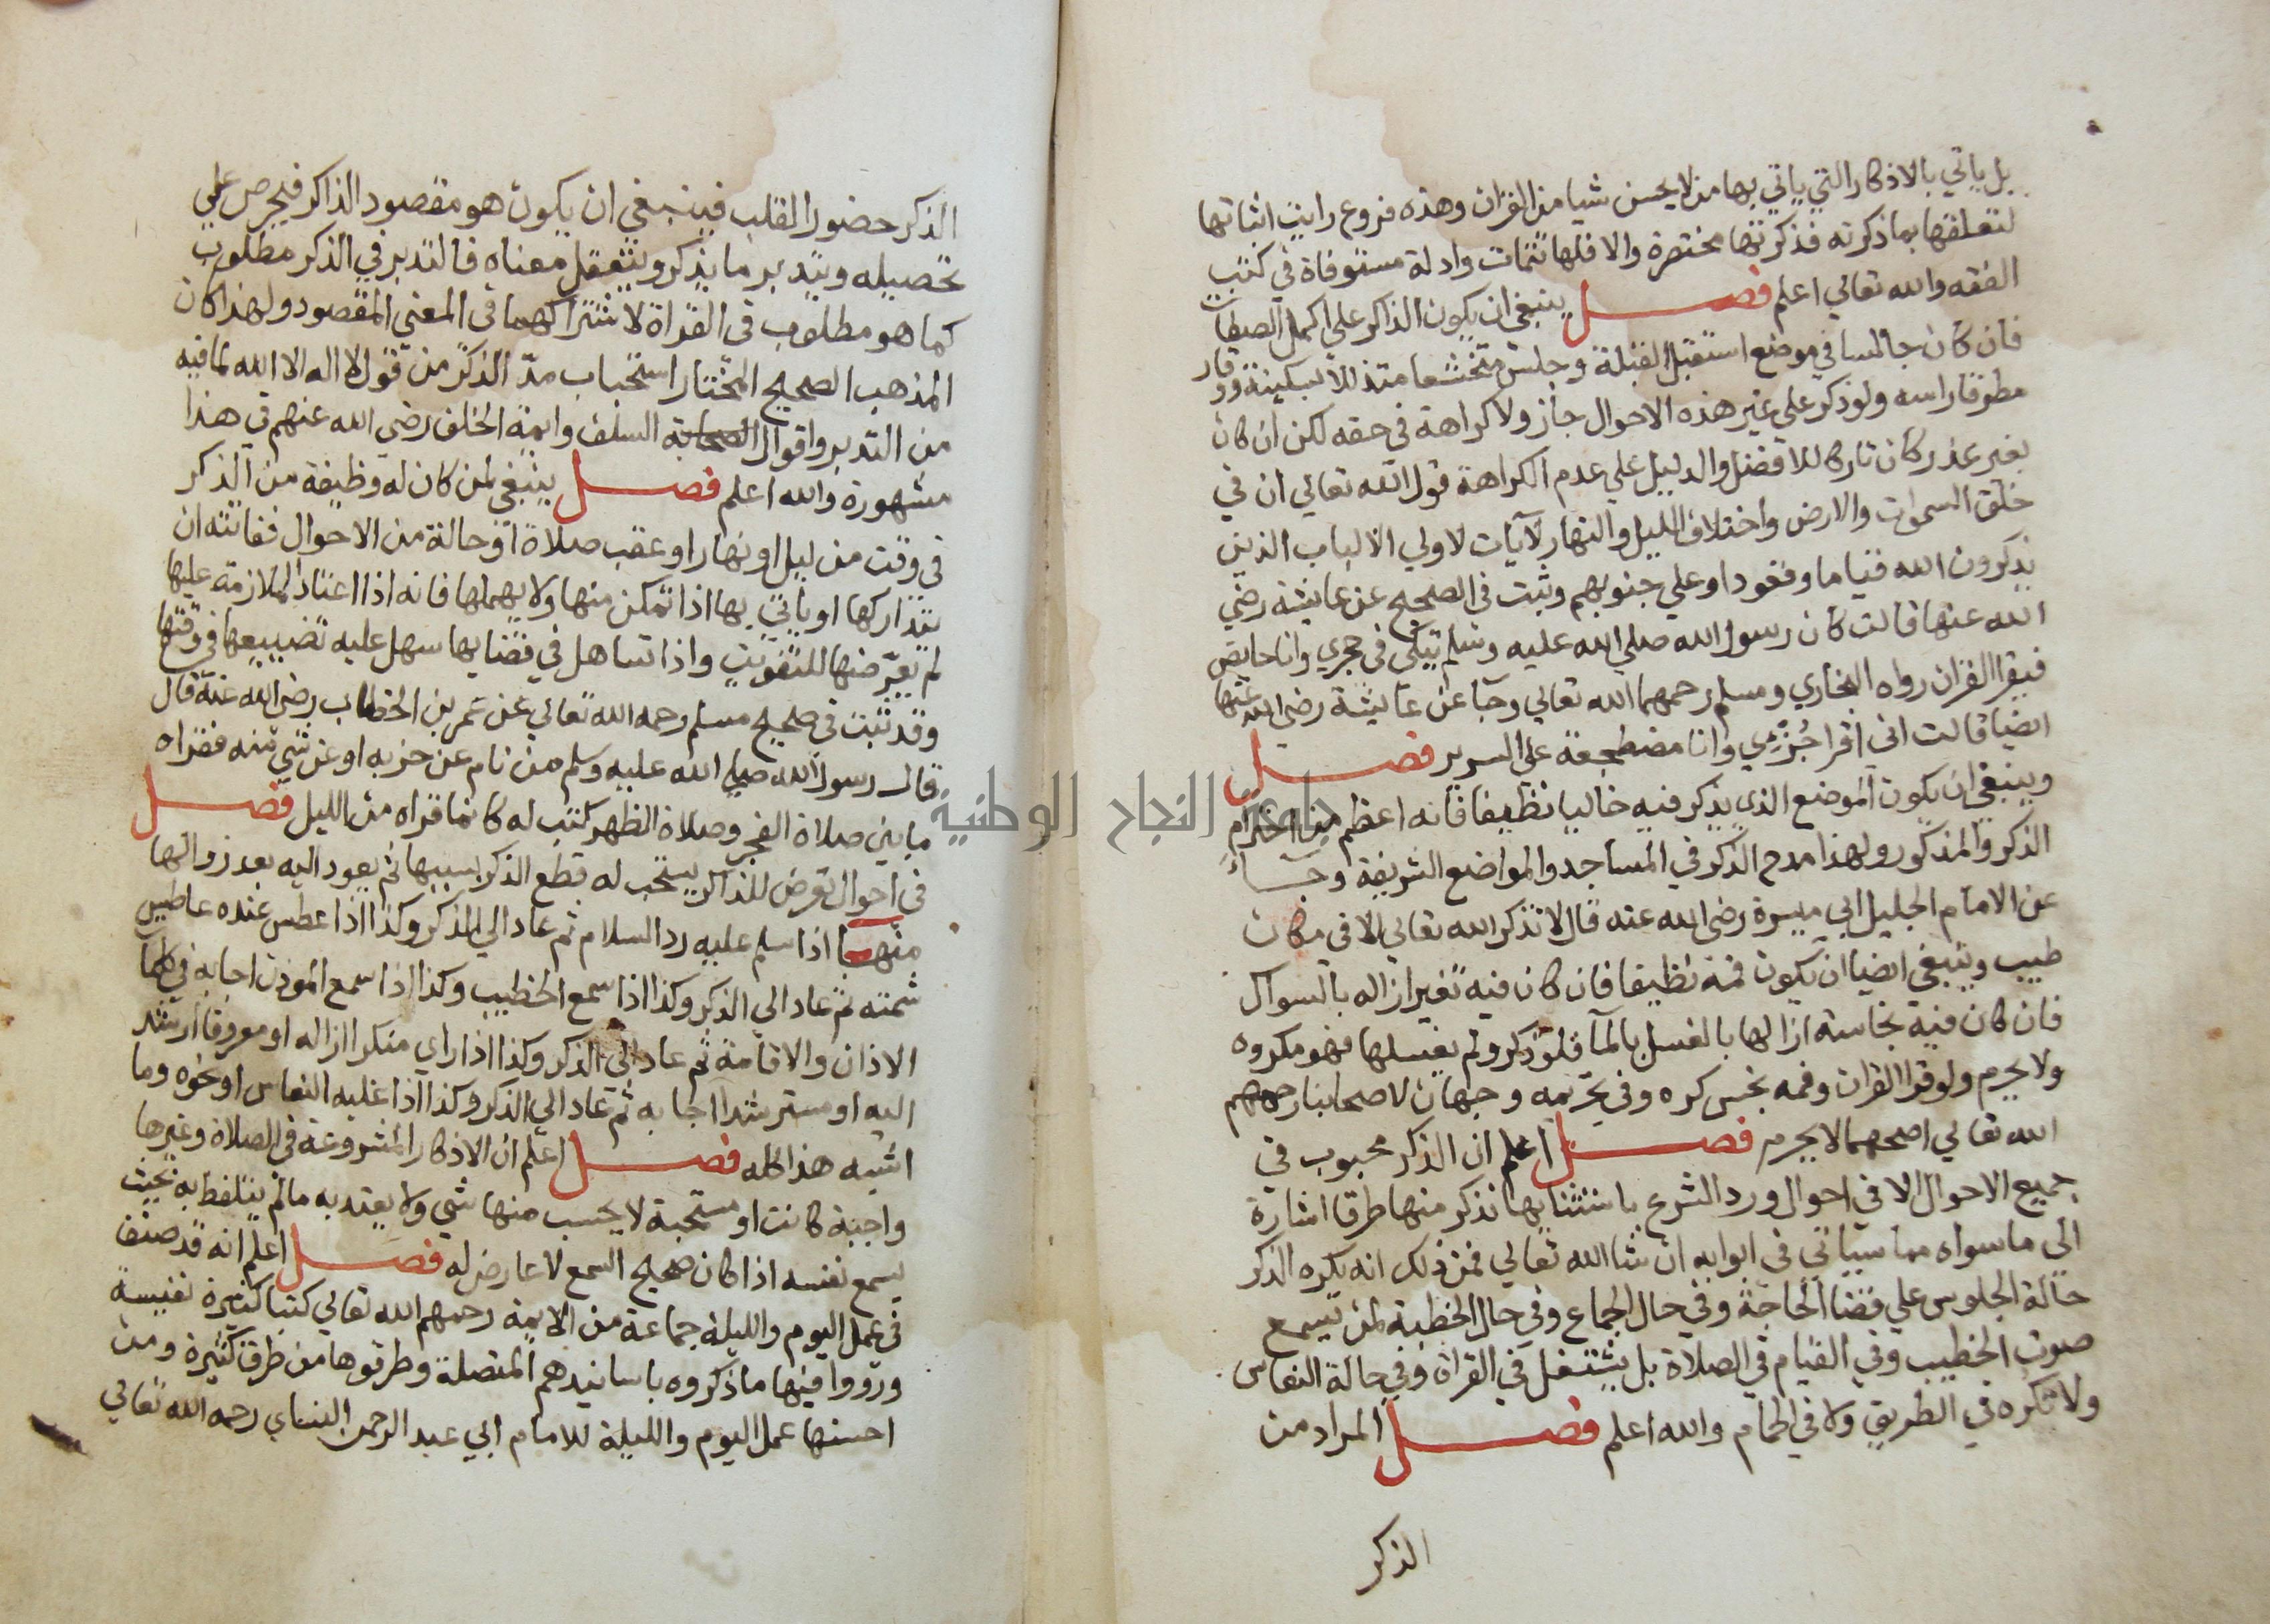 بل ياتي بالاذكار التي ياتي بها من لا يحسن شيا من القران وهذه فروع رايت اثباتها
لتعلقها بما ذكرته فذكرتها مختصرة والا فلها تتمات وادلة مستوفاة في كتب
الفقه والله تعالي اعلم فصل ينبغي ان يكون الذاكر علي اكمل الصفات
فان كان جالسا في موضع استقبل القبلة وجلس متخشعا متذللا بسكينة ووقار
مطرقا راسه ولو ذكر علي غير هذه الاحوال جاز ولا كراهة في حقه لكن ان كان
بغير عذر كان تاركا للافضل والدليل علي عدم الكراهة قول الله تعالي ان في
خلق السموات والارض واختلاف الليل والنهار لآيات لاولي الالباب الذين
يذكرون الله قياما وقعودا وعلي جنوبهم وثبت في الصحيح عن عايشة رضي
الله عنها قالت كان رسول الله صلي الله عليه وسلم يتكي في حجري وانا حايض
فيقرا القران رواه البخاري ومسلم رحمهما الله تعالي وجآ عن عايشة رضي الله عنها
ايضا قالت اني اقرا حزبي وانا مضطجعة علي السرير فصل
وينبغي ان يكون الموضع الذي يذكر فيه خاليا نظيفا فانه اعظم في احترام
الذكر والمذكور ولهذا مدح الذكر في المساجد والمواضع الشريفة وجاء
عن الامام الجليل ابي ميسرة رضي الله عنه قال لا تذكر الله تعالي الا في مكان
طيب وينبغي ايضا ان يكون فمه نظيفا فان كان فيه تغير ازاله بالسواك
فان كان فيه نجاسة ازالها بالغسل بالمآ فلو ذكر ولم يغسلها فهو مكروه
ولا يحرم ولو قرا القران وفمه نجس كره وفي تحريمه وجهان لاصحابنا رحمهم
الله تعالي اصحهما لا يحرم فصل اعلم ان الذكر محبوب في
جميع الاحوال الا في احوال ورد الشرع باستثنايها نذكر منها طرفا اشارة
الي ما سواه مما سياتي في ابوابه ان شا الله تعالي فمن ذلك انه يكره الذكر
حالة الجلوس علي قضا الحاجة وفي حال الجماع وفي حال الخطبة لمن يسمع
صوت الخطيب وفي القيام في الصلاة بل يشتغل في القراة وفي حالة النعاس
ولا تكره في الطريق ولا في الحمام والله اعلم فصل المراد من
الذكر
الذكر حضور القلب فينبغي ان يكون هو مقصود الذاكر فيحرص علي
تحصيله ويتدبر ما يذكر ويتعقل معناه فالتدبر في الذكر مطلوب
كما هو مطلوب في القراة لاشتراكهما في المعني المقصود ولهذا كان
المذهب الصحيح المختار استحباب مدّ الذكر من قول لا اله الا الله لما فيه
من التدبر واقوال الصحابة السلف وايمة الخلف رضي الله عنهم في هذا
مشهورة والله اعلم فصل ينبغي لمن كان له وظيفة من الذكر
في وقت من ليل او نهار او عقب صلاة او حالة من الاحوال ففاتته ان
يتداركها او ياتي بها اذا تمكن منها ولا يهملها فانه اذا اعتاد الملازمة عليها
لم يعرّضها للتفويت واذا تساهل في قضايها سهل عليه تضييعها في وقتها
وقد ثبت في صحيح مسلم رحمه الله تعالي عن عمر بن الخطاب رضي الله عنه قال
قال رسول الله صلي الله عليه وسلم من نام عن حزبه او عن شي منه فقراه
ما بين صلاة الفجر وصلاة الظهر كتب له كانما قراه من الليل فصل
في احوال تعرض للذاكر يستحب له قطع الذكر بسببها ثم يعود اليه بعد زوالها
منها اذا سلم عليه رد السلام ثم عاد الي الذكر وكذا اذا عطس عنده عاطس
شمته ثم عاد الي الذكر وكذا اذا سمع الخطيب وكذا اذا سمع الموذن اجابه في كلما
الاذان والاقامة ثم عاد الي الذكر وكذا اذا راي منكرا ازاله او معروفا ارشد
اليه او مسترشدا اجابه ثم عاد الي الذكر وكذا اذا غلبه النعاس او نحوه وما
اشبه هذا كله فصل اعلم ان الاذكار المشروعة في الصلاة وغيرها
واجبة كانت او مستحبة لا يحسب منها شي ولا يعتد به ما لم يتلفظ به بحيث
يسمع نفسه اذا كان صحيح السمع لا عارض له فصل اعلم انه قد صنف
في عمل اليوم والليلة جماعة من الايمة رحمهم الله تعالي كتبا كثيرة نفيسة
ورووا فيها ما ذكروه باسانيدهم المتصلة وطرقوها من طرق كثيرة ومن
احسنها عمل اليوم والليلة للامام ابي عبد الرحمن النساي رحمه الله تعالي
جامعة النجاح الوطنية